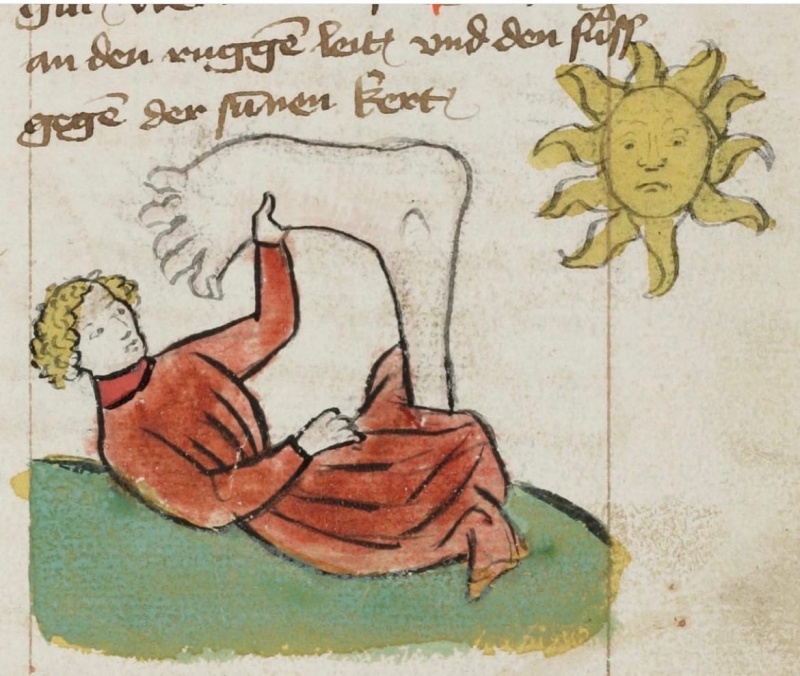 an den ruggē leit vnd den fuͦſſ
gegē der ſūnen kert